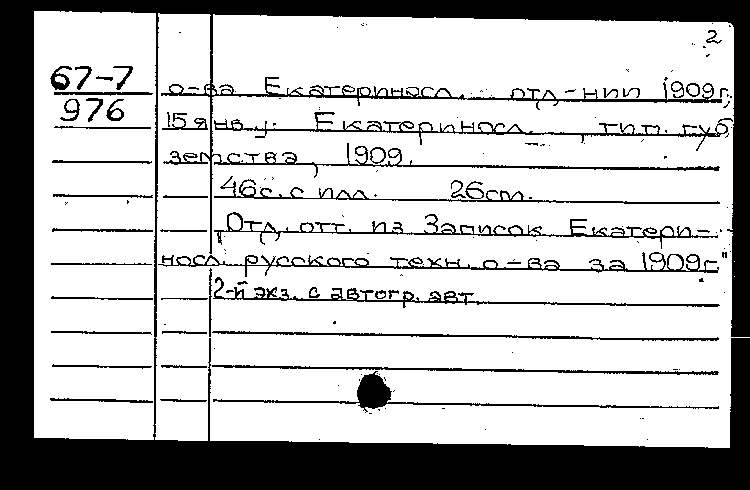 2
67-7
976
о-ва Екатериносл. отд-нии 1909г.,
15 янв.у. Екатериносл. , тип. губ
земства, 1909.
46с. с илл. 26см.
„Отд. отт. из Записок Екатери-
носл. русского техн. о-ва за 1909г."
2-й экз. с автогр. авт.